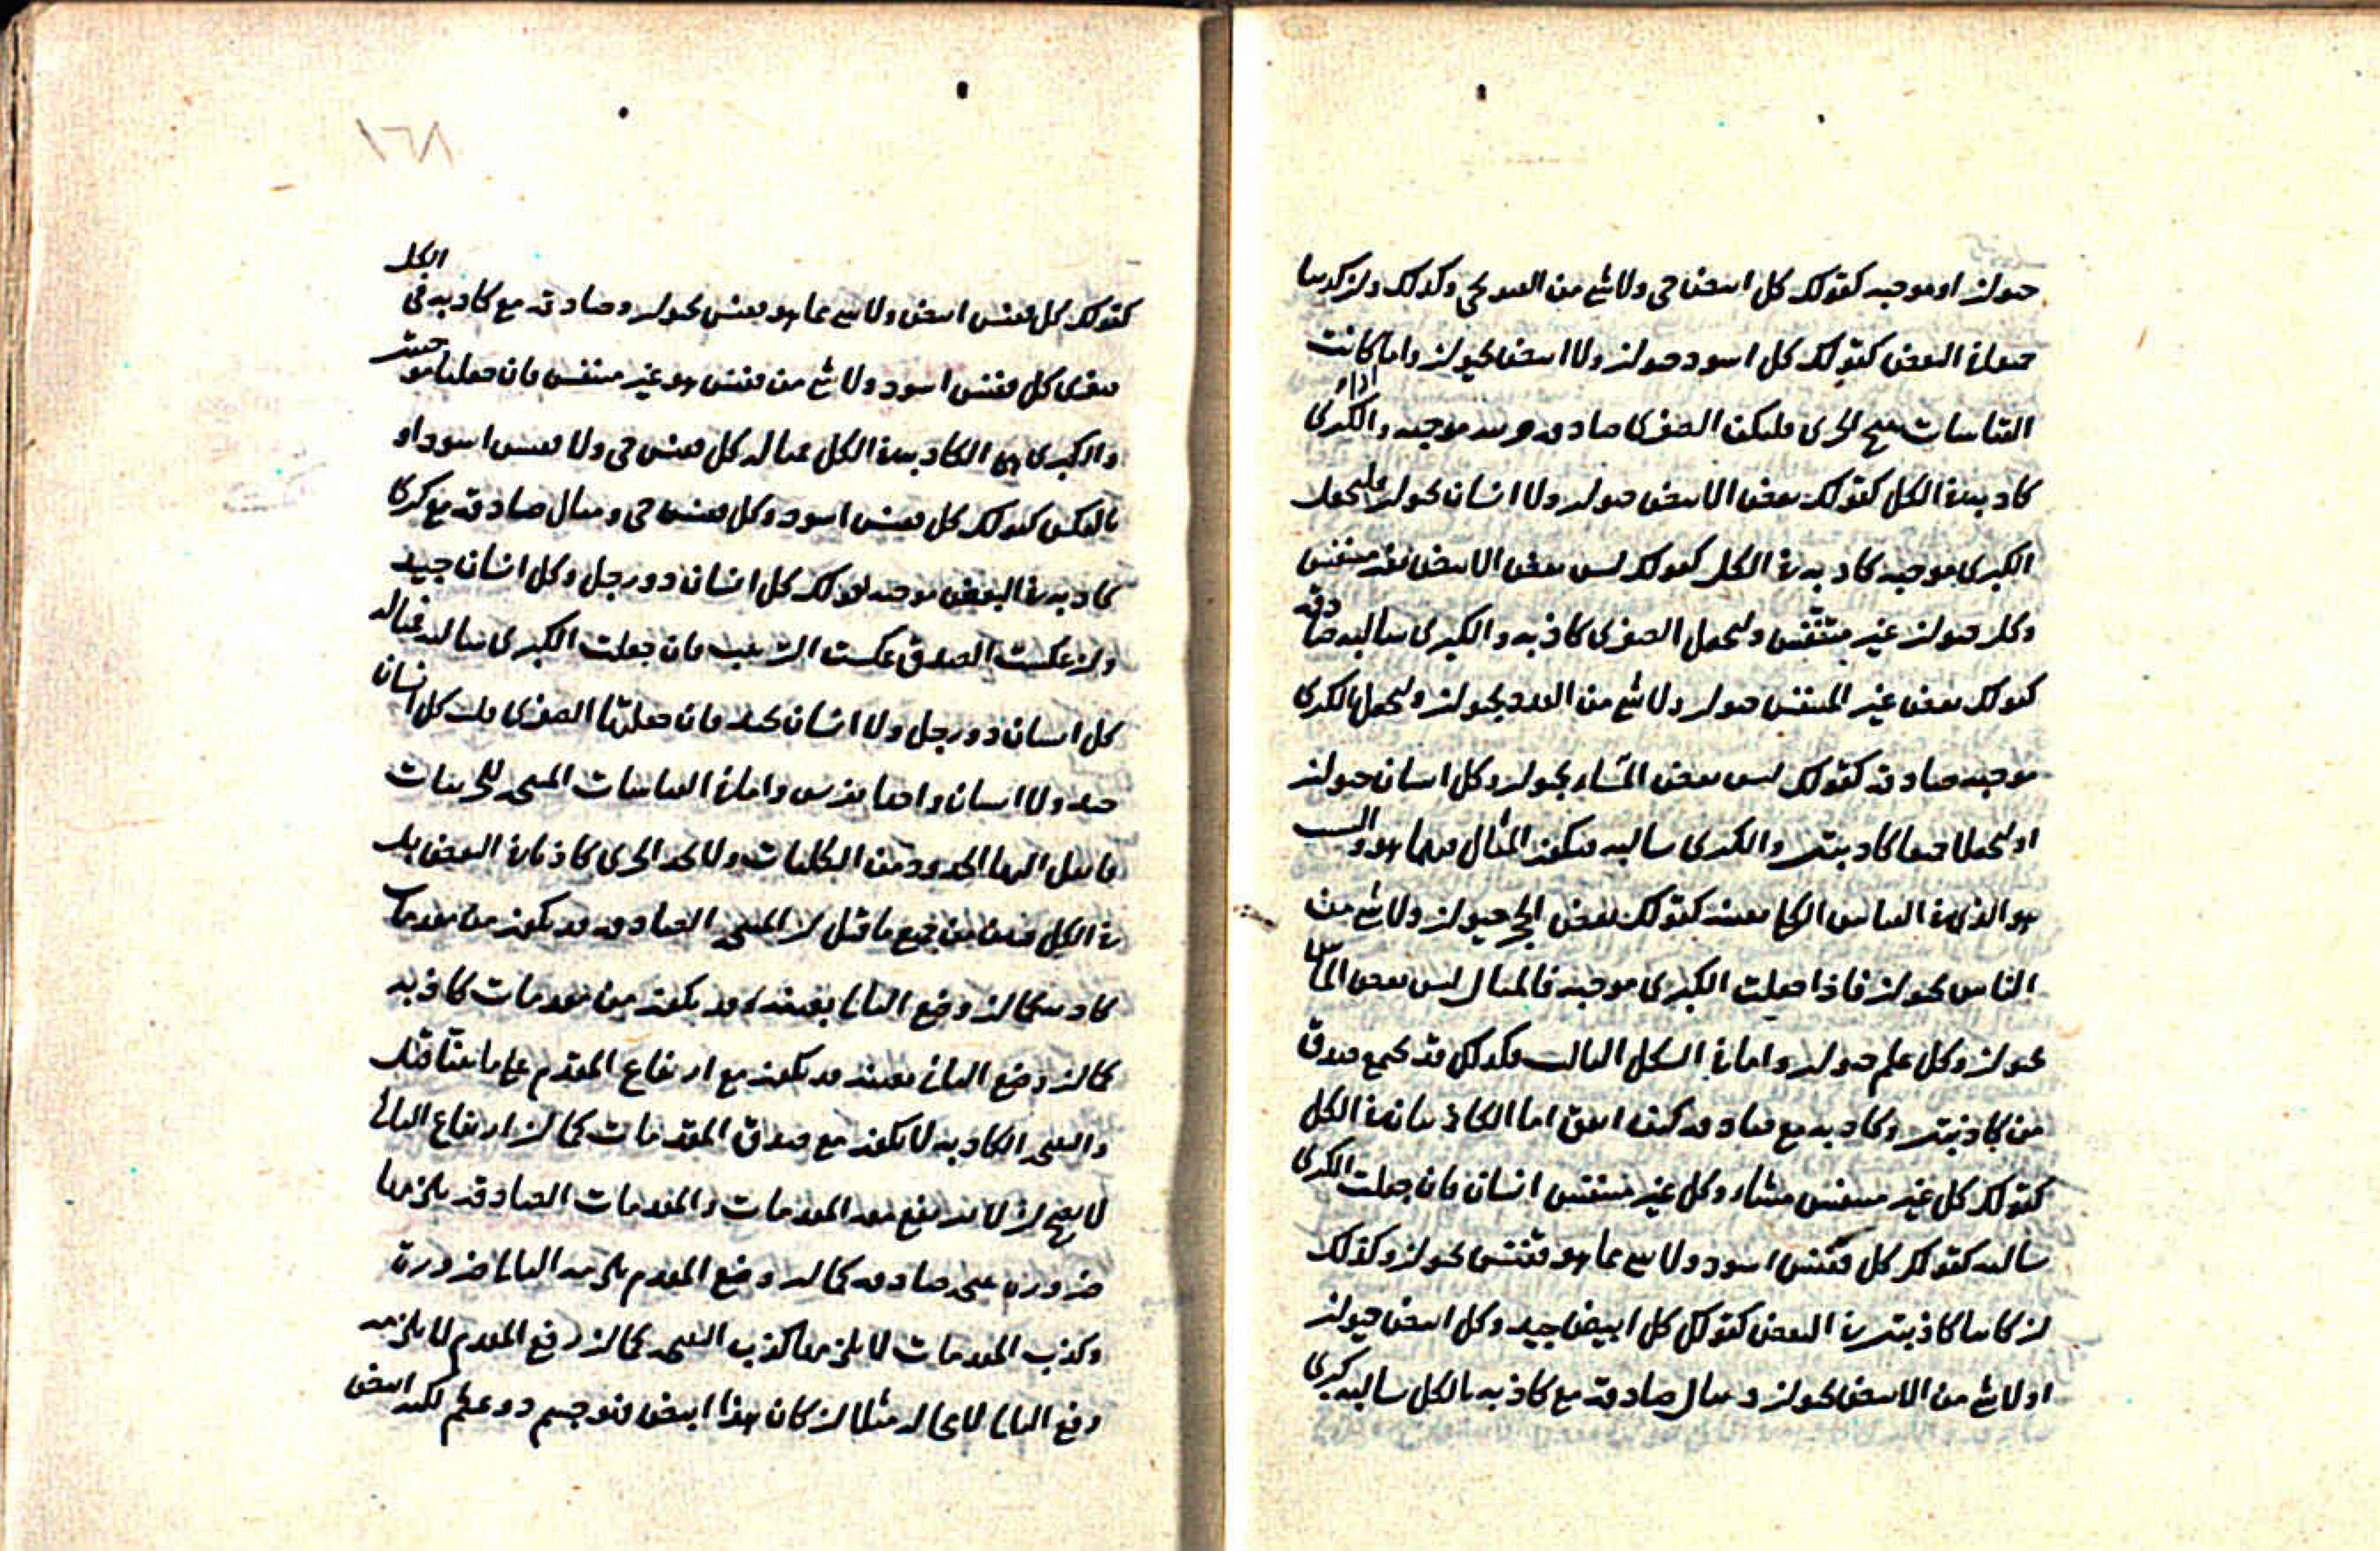 حيوان او موجبه كقولك كل ابيض حي ولا شي من العدد بحي وكذلك ان كذبتا
جميعا في البعض كقولك كل اسود حيوان ولا ابيض بحيوان واما اذا كانت
القياسات تنتج الجزئي فليكن الصغرى صادقه موجبه والكبرى
كاذبه في الكل كقولك بعض الابيض حيوان ولا انسان بحيوان
الكبرى موجبه كاذبه في الكل كقولك ليس بعض الابيض متنفس
وكل حيوان غير متنفس ولتجعل الصغرى كاذبه والكبرى سالبه صادقه
كقولك بعض غير المتنفس حيوان ولا شي من العدد بحيوان ولتجعل الكبرى
موجبه صادقه كقولك ليس بعض المشاء بحيوان وكل انسان حيوان
او لتجعلا جميعا كاذبتين والكبرى سالبه فيكون المثال
هو الذي في القياس الكلي بعينه كقولك بعض الحي حيوان ولا شي من
الناس بحيوان فاذا جعلت الكبرى موجبه فالمثال ليس بعض الناس
بحيوان وكل علم حيوان واما في الشكل الثالث فكذلك قد تجمع صدق
من كاذبتين وكاذبه مع صادقه كيف اتفق اما الكاذبتان في الكل
كقولك كل غير متنفس مشاء وكل غير متنفس انسان فان جعلت الكبرى
سالبه كقولك كل ققنس اسود ولا شي مما هو ققنس بحيوان وكذلك
ان كانتا كاذبتين في البعض كقولك كل ابيض جيد وكل ابيض حيوان
او لا شي من الابيض بحيوان ومثال صادقه مع كاذبه بالكل سالبه كبرى
١٦٨
كقولك كل ققنس ابيض ولا شي مما هو ققنس بحيوان وصادقه مع كاذبه في الكل
صغرى كل ققنس اسود ولا شي من ققنس هو غير متنفس فان جعلتا موجبتين
والكبرى هي الكاذبه في الكل مثاله كل ققنس حي ولا ققنس اسود او
بالعكس كقولك كل ققنس اسود وكل ققنس حي ومثال صادقه مع كبرى
كاذبه في البعض موجبه كقولك كل انسان ذو رجل وكل انسان جيد
وان عكست الصدق عكست الترتيب فان جعلت الكبرى سالبه فمثاله
كل انسان ذو رجل ولا انسان بجيد فان جعلتها الصغرى قلت كل انسان
جيد ولا انسان واما القياسات المنتجه للجزئيات
فانقل اليها الحدود من الكليات ولا تجد الجزئي كاذبا في البعض بل
في الكل فبين من جميع ما قيل ان النتيجه الصادقه قد تكون من مقدمات
كاذبه كما ان وضع التالي بعينه قد يكون من مقدمات كاذبه
كما ان وضع التالي بعينه قد يكون مع ارتفاع المقدم على ما بينا قبل
والنتيجه الكاذبه لا تكون مع صدق المقدمات كما ان ارتفاع التالي
لا يصح ان لا يرتفع معه المقدمات والمقدمات الصادقه يلزمها
ضروره نتيجه صادقه كما ان وضع المقدم يلزمه التالي ضرورة
وكذب المقدمات لا يلزمها كذب النتيجه كما ان رفع المقدم لا يلزمه
رفع التالي لا محاله مثلا ان كان هذا ابيض فهو جسم ذو عظم لكنه ابيض